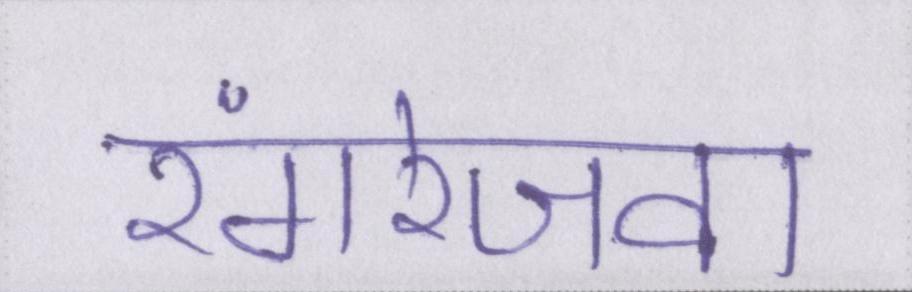 रंगरेजवा